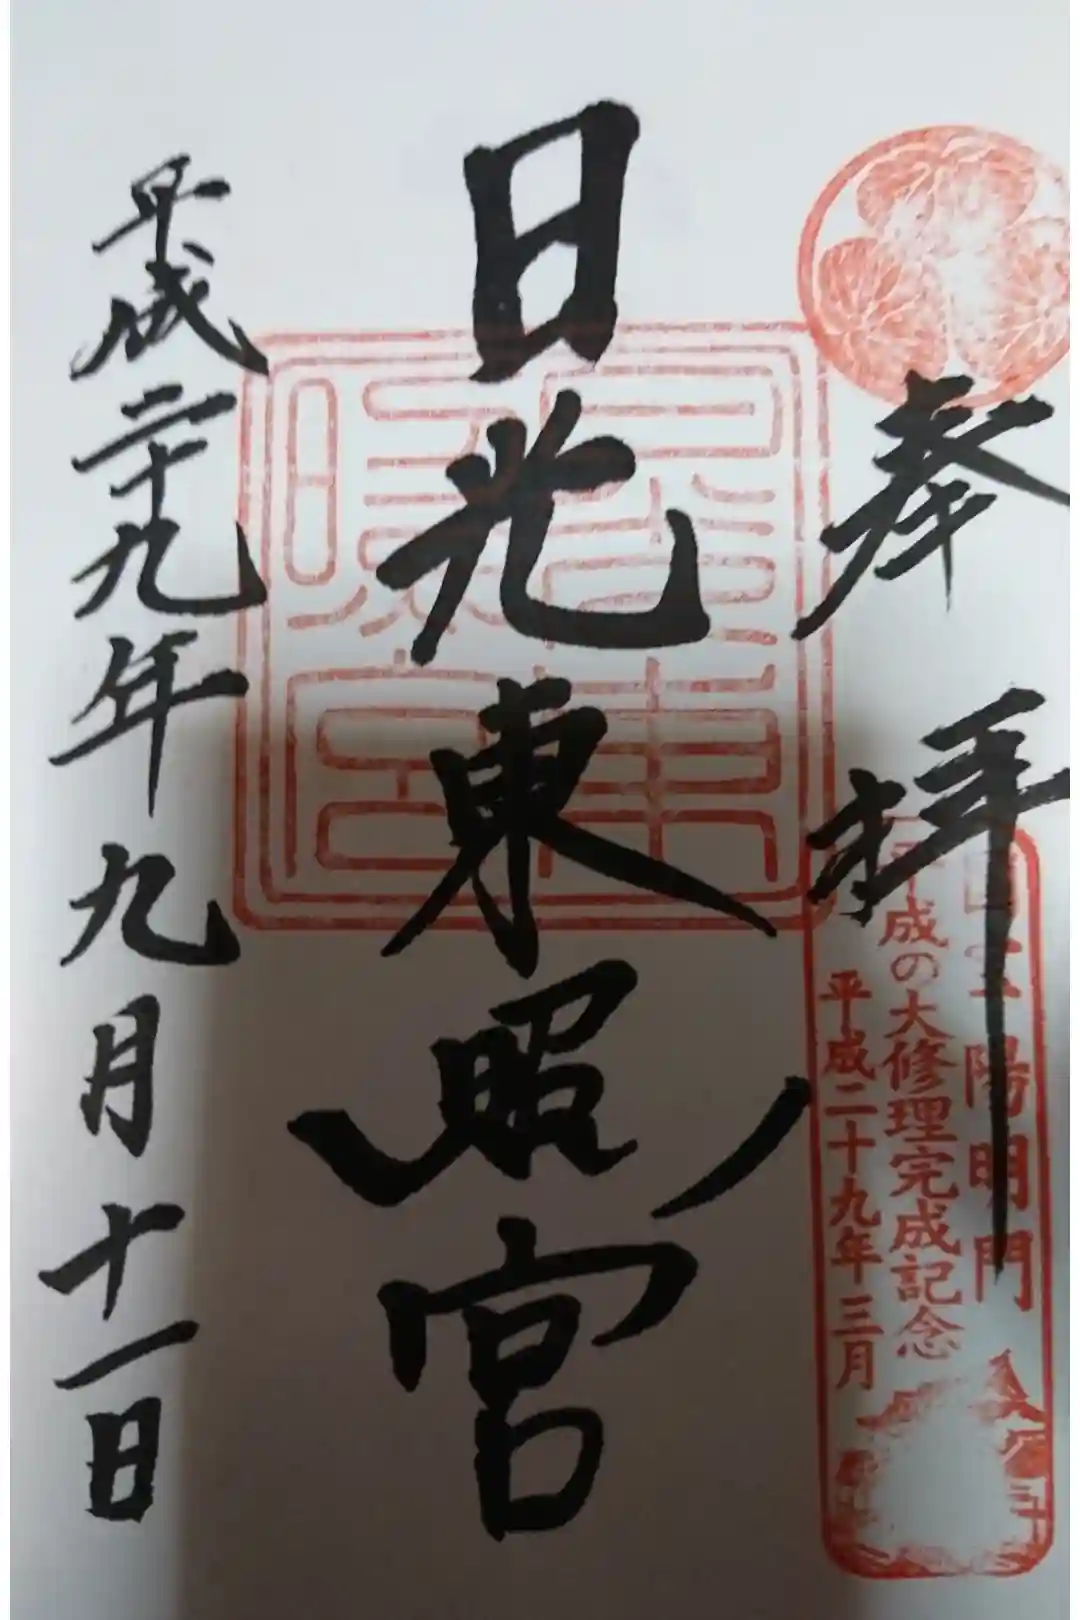 奉拝
国宝 陽明門
平成の大修理完成記念
平成二十九年三月
日光東照宮
平成二十九年九月十一日